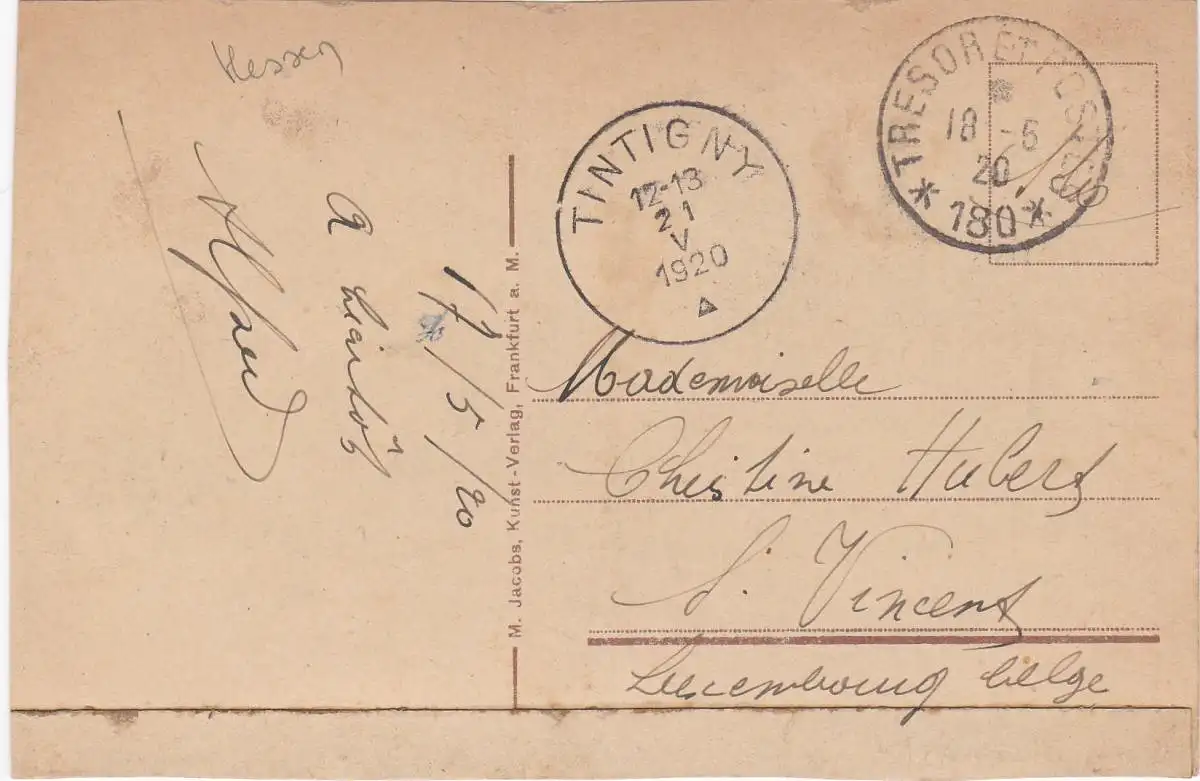 Hessen
17/5/20
A bientôt
Alfred
M. Jacobs, Kunst-Verlag, Frankfurt a. M.
TINTIGNY
12-13
21
V
1920
TRESOR ET POSTES
18 -5
20
* 180 *
Mademoiselle
Christine Hubert
S. Vincent
Luxembourg belge